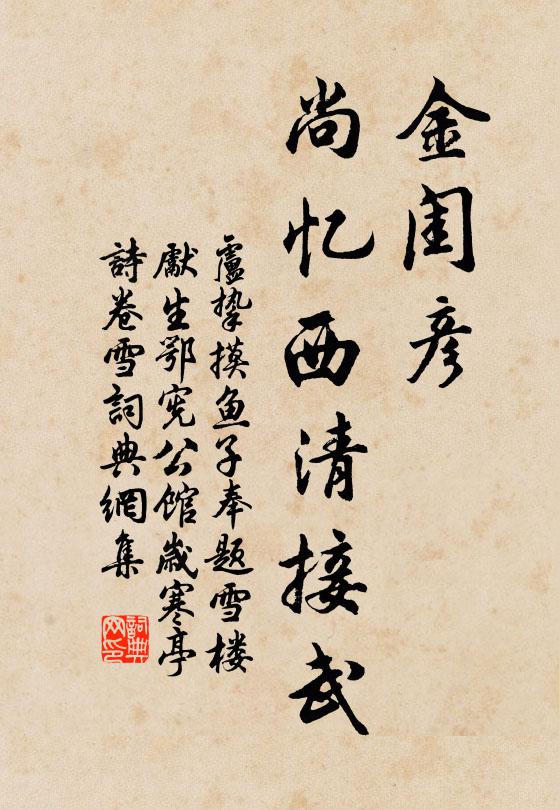 金闺彦
尚忆西清接武
盧摯摸鱼子奉题雪楼
獻生鄂宪公館歲寒亭
詩卷雪詞典網集
詞典网印